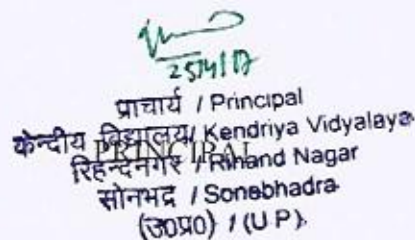 25/4/17
प्राचार्य / Principal
केन्द्रीय विद्यालय / Kendriya Vidyalaya
PRINCIPAL
रिहन्दनगर / Rihand Nagar
सोनभद्र / Sonebhadra
(उ0प्र0) / (U P).